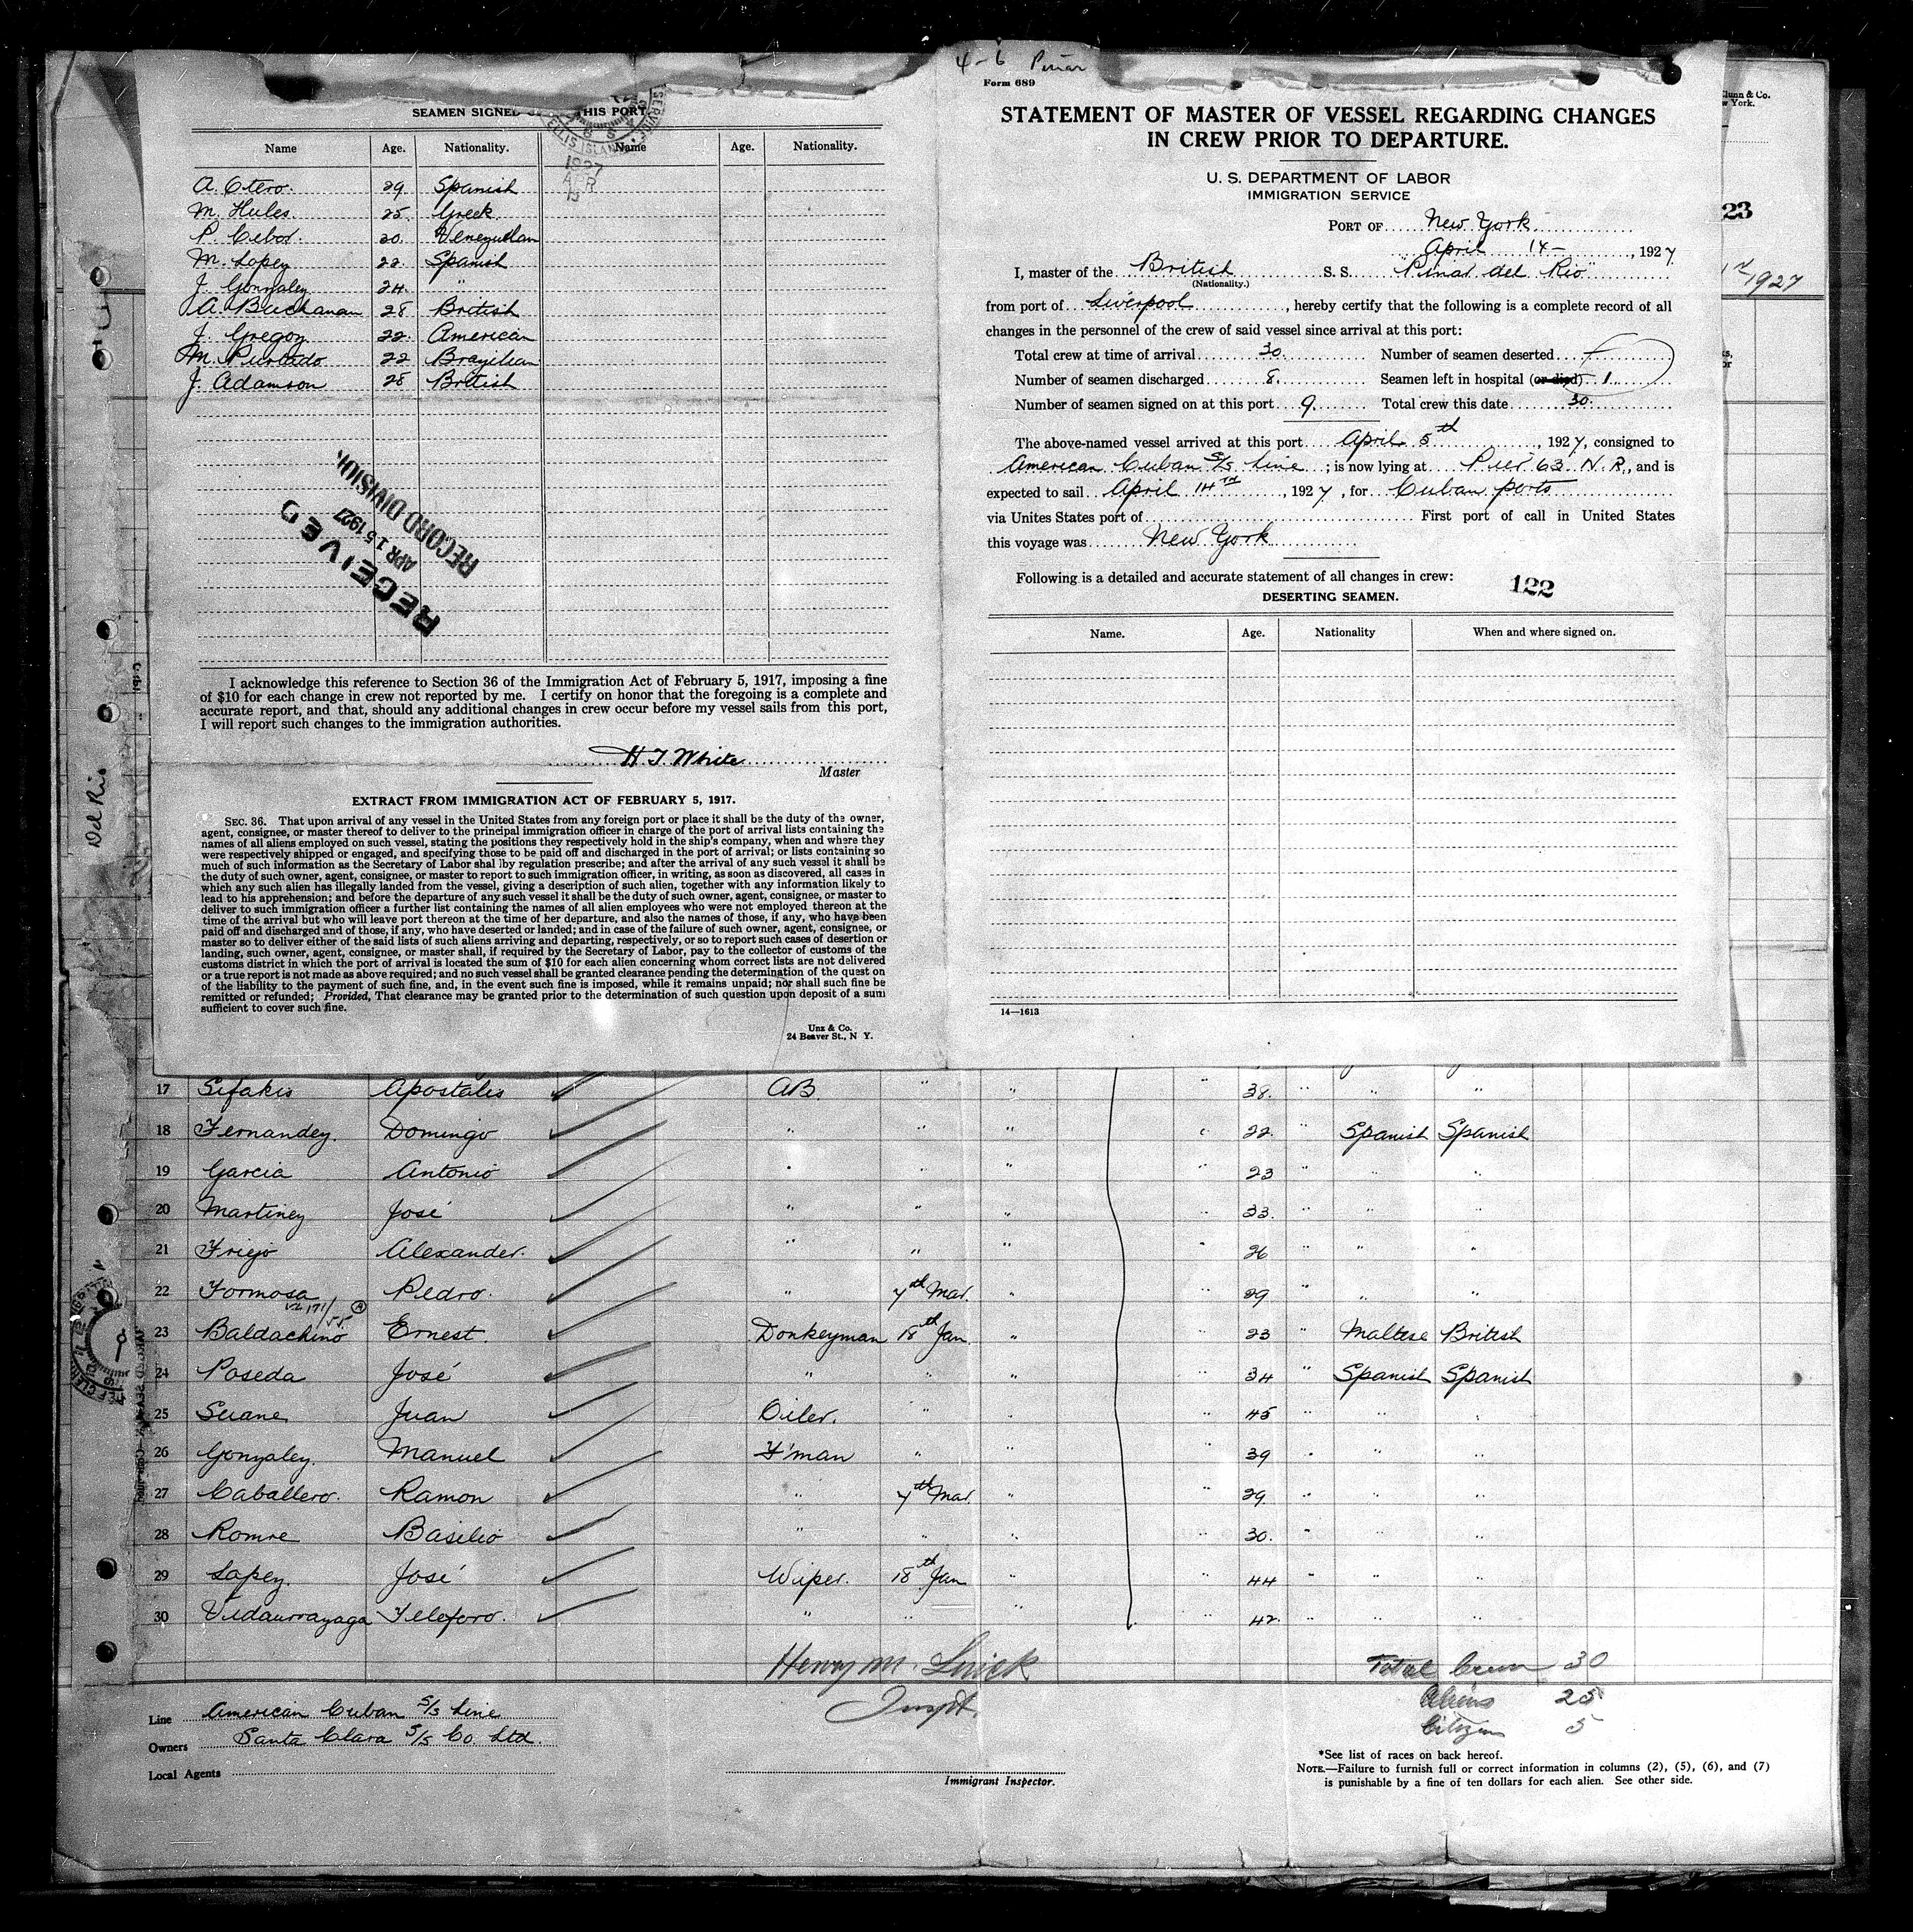 4-6 Pinar
SEAMEN SIGNED THIS PORT
Name Age. Nationality. Name Age. Nationality.
ELLIS ISLAND
1927
APR
15
A. Otero. 29. Spanish
M. Hules. 25. Greek.
P. Cebor. 30. Venezuelan
M. Lopez 22. Spanish
J. Gonzalez 24. "
A. Buchanan 28 British
J. Gregoy 22. American
M. Purtado 22 Brazilian
J. Adamson 28 British
RECEIVED
APR 15 1927
RECORD DIVISION
I acknowledge this reference to Section 36 of the Immigration Act of February 5, 1917, imposing a fine
of $10 for each change in crew not reported by me. I certify on honor that the foregoing is a complete and
accurate report, and that, should any additional changes in crew occur before my vessel sails from this port,
I will report such changes to the immigration authorities.
H. T. White
Master
EXTRACT FROM IMMIGRATION ACT OF FEBRUARY 5, 1917.
SEC. 36. That upon arrival of any vessel in the United States from any foreign port or place it shall be the duty of the owner,
agent, consignee, or master thereof to deliver to the principal immigration officer in charge of the port of arrival lists containing the
names of all aliens employed on such vessel, stating the positions they respectively hold in the ship's company, when and where they
were respectively shipped or engaged, and specifying those to be paid off and discharged in the port of arrival; or lists containing so
much of such information as the Secretary of Labor shal lby regulation prescribe; and after the arrival of any such vessel it shall be
the duty of such owner, agent, consignee, or master to report to such immigration officer, in writing, as soon as discovered, all cases in
which any such alien has illegally landed from the vessel, giving a description of such alien, together with any information likely to
lead to his apprehension; and before the departure of any such vessel it shall be the duty of such owner, agent, consignee, or master to
deliver to such immigration officer a further list containing the names of all alien employees who were not employed thereon at the
time of the arrival but who will leave port thereon at the time of her departure, and also the names of those, if any, who have been
paid off and discharged and of those, if any, who have deserted or landed; and in case of the failure of such owner, agent, consignee, or
master so to deliver either of the said lists of such aliens arriving and departing, respectively, or so to report such cases of desertion or
landing, such owner, agent, consignee, or master shall, if required by the Secretary of Labor, pay to the collector of customs of the
customs district in which the port of arrival is located the sum of $10 for each alien concerning whom correct lists are not delivered
or a true report is not made as above required; and no such vessel shall be granted clearance pending the determination of the quest on
of the liability to the payment of such fine, and, in the event such fine is imposed, while it remains unpaid; nor shall such fine be
remitted or refunded; Provided, That clearance may be granted prior to the determination of such question upon deposit of a sum
sufficient to cover such fine.
Unz & Co.
24 Beaver St., N Y.
Form 689
STATEMENT OF MASTER OF VESSEL REGARDING CHANGES
IN CREW PRIOR TO DEPARTURE.
U. S. DEPARTMENT OF LABOR
IMMIGRATION SERVICE
PORT OF New York
April 14 - , 1927
I, master of the British S. S. Pinar del Rio
(Nationality.)
from port of Liverpool , hereby certify that the following is a complete record of all
changes in the personnel of the crew of said vessel since arrival at this port:
Total crew at time of arrival 30. Number of seamen deserted -
Number of seamen discharged 8. Seamen left in hospital (or died) 1.
Number of seamen signed on at this port 9. Total crew this date 30.
The above-named vessel arrived at this port April 5th , 1927, consigned to
American Cuban S/S Line ; is now lying at Pier 63 N.R., and is
expected to sail April 14TH , 1927, for Cuban ports
via Unites States port of First port of call in United States
this voyage was New York
Following is a detailed and accurate statement of all changes in crew: 122
DESERTING SEAMEN.
Name. Age. Nationality When and where signed on.
14—1613
& Co.
York.
23
1927
Del Rio
17 Sifakis Apostalis AB. " " " 38. " " "
18 Fernandez. Domingo " " " " 22. " Spanish Spanish
19 Garcia Antonio " " " " 23 " " "
20 Martinez José " " " " 33. " " "
21 Friejo Alexander. " " " " 26 " " "
22 Formosa Pedro. " 7th Mar. " 29 " " "
23 Baldachino Ernest. Donkeyman 18th Jan. " " 23 " Maltese British
24 Poseda José " " " " 34 " Spanish Spanish
25 Suane Juan Oiler. " " " 45 " " "
26 Gonzalez. Manuel F'man " " " 39 " " "
27 Caballero. Ramon " 7th Mar. " " 29. " " "
28 Romre Basilio " " " " 30. " " "
29 Lopez. José Wiper. 18th Jan " " 44 " " "
30 Vidaurrazaga Teleforo. " " " " 42. " " "
Henry M.
Inspt.
Total Crew 30
Aliens 25
Citizen 5
Line American Cuban S/S Line
Owners Santa Clara S/S Co. Ltd.
Local Agents
Immigrant Inspector.
*See list of races on back hereof.
NOTE.—Failure to furnish full or correct information in columns (2), (5), (6), and (7)
is punishable by a fine of ten dollars for each alien. See other side.